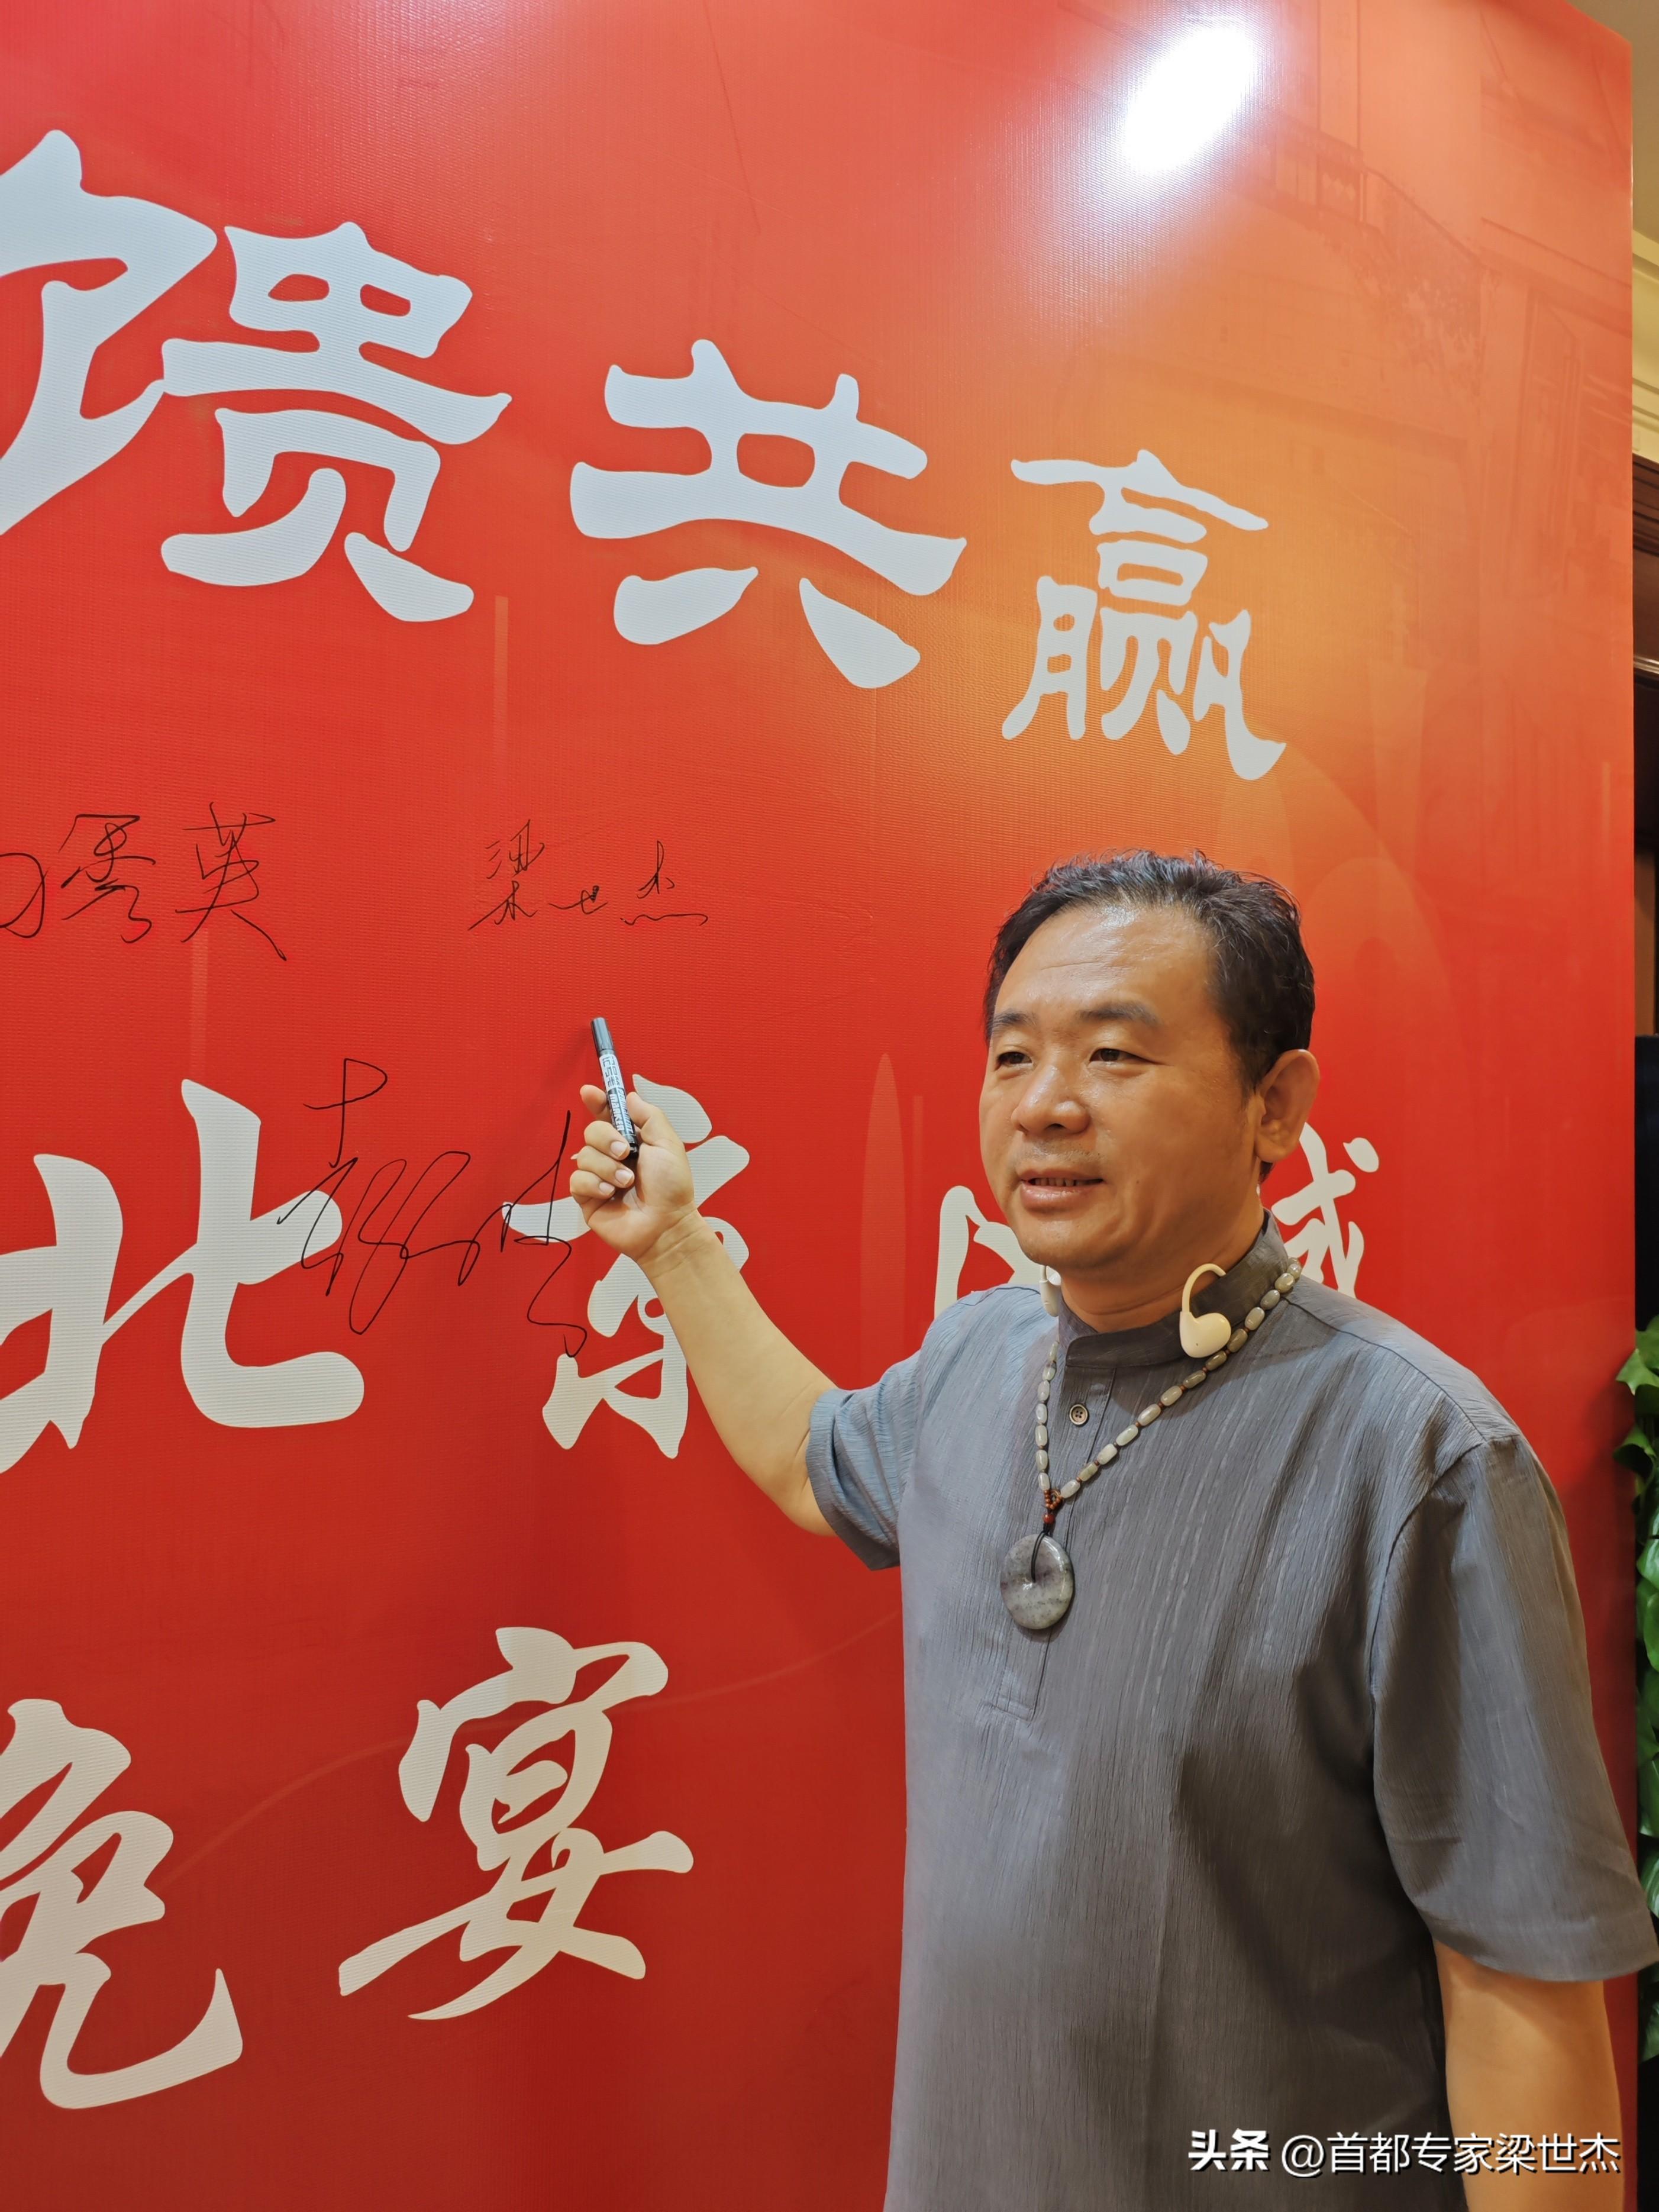 馈共赢
秀英 梁世杰
北京
晚宴
头条 @首都专家梁世杰